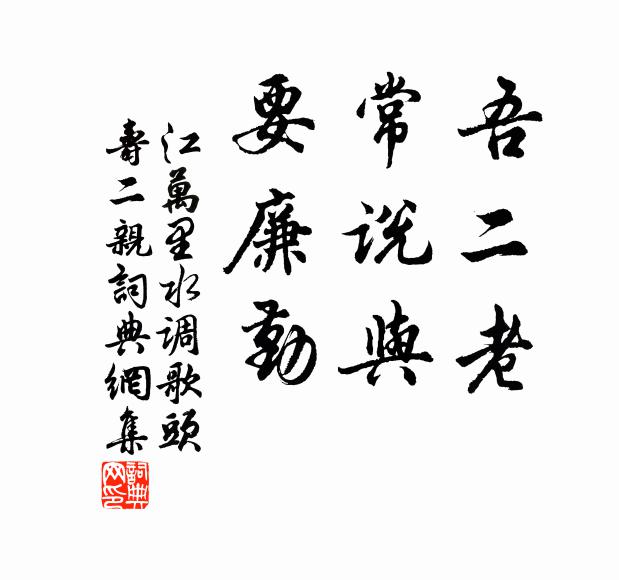 吾二老
常説與
要廉勤
江萬里水调歌頭
壽二親詞典網集
詞典网印